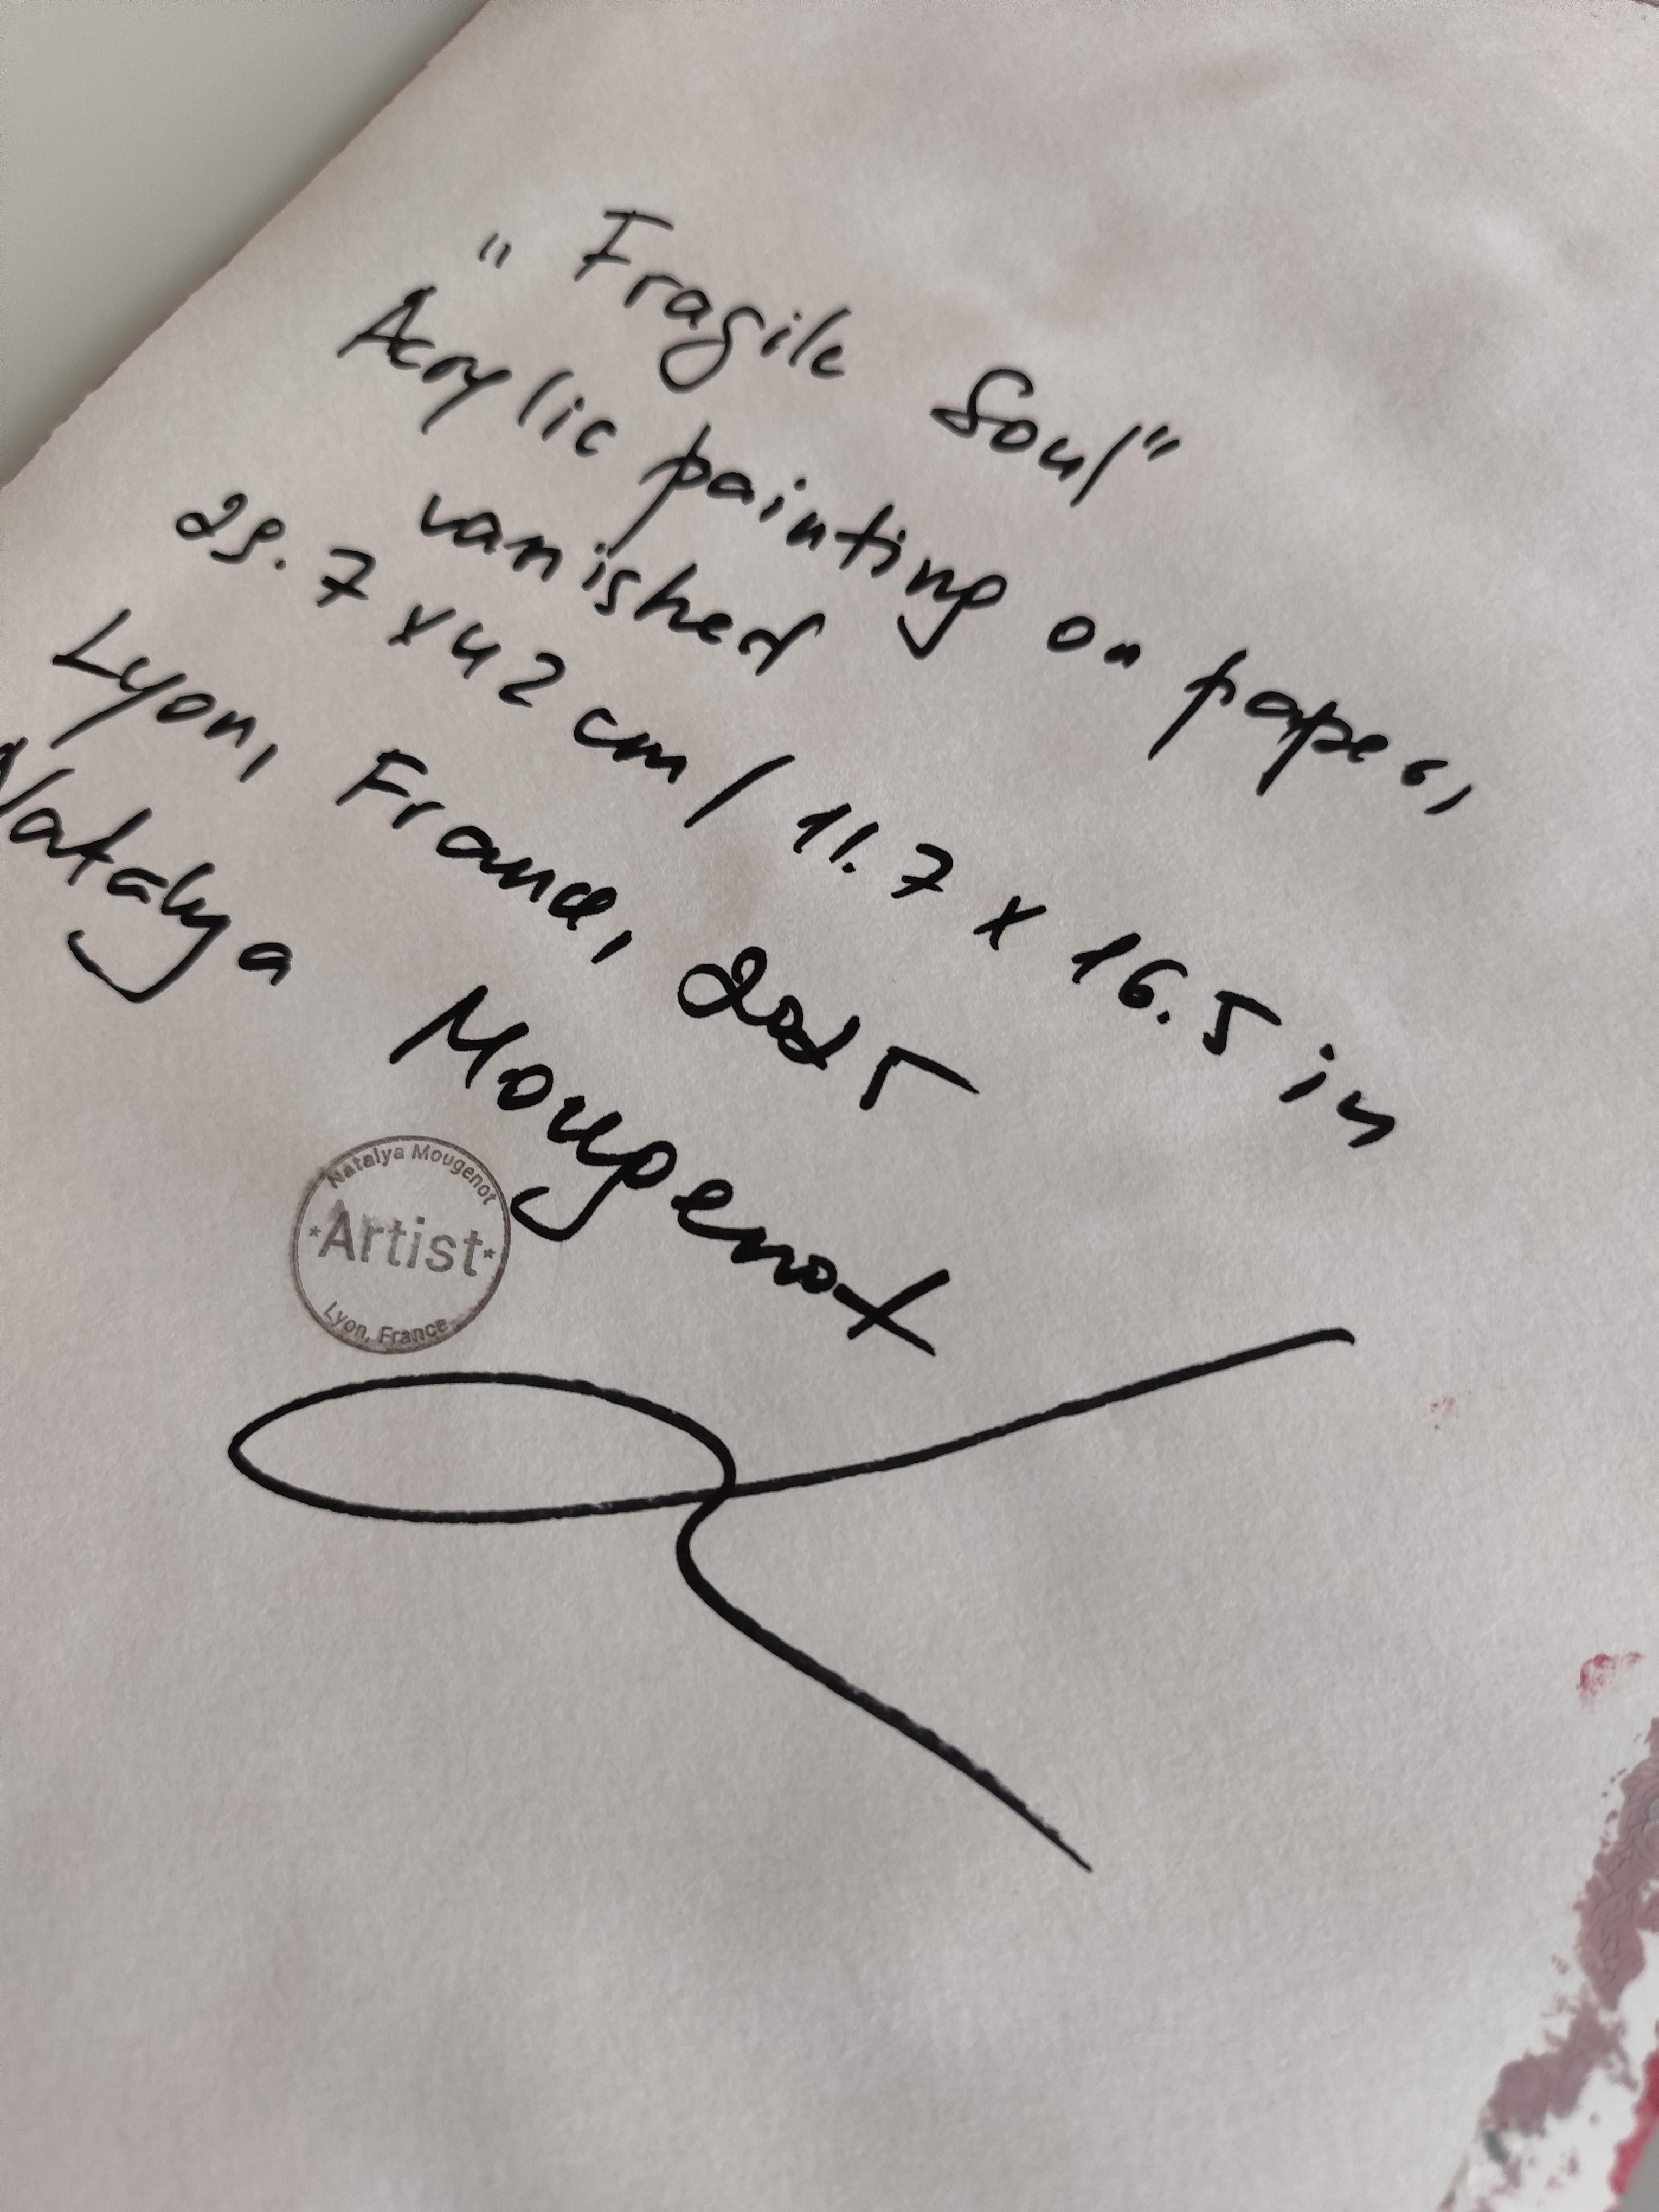 "Fragile Soul"
Acrylic painting on paper,
vanished
29.7 x 42 cm / 11.7 x 16.5 in
Lyon, France, 2025
Natalya Mougenot
Natalya Mougenot
Artist
Lyon, France